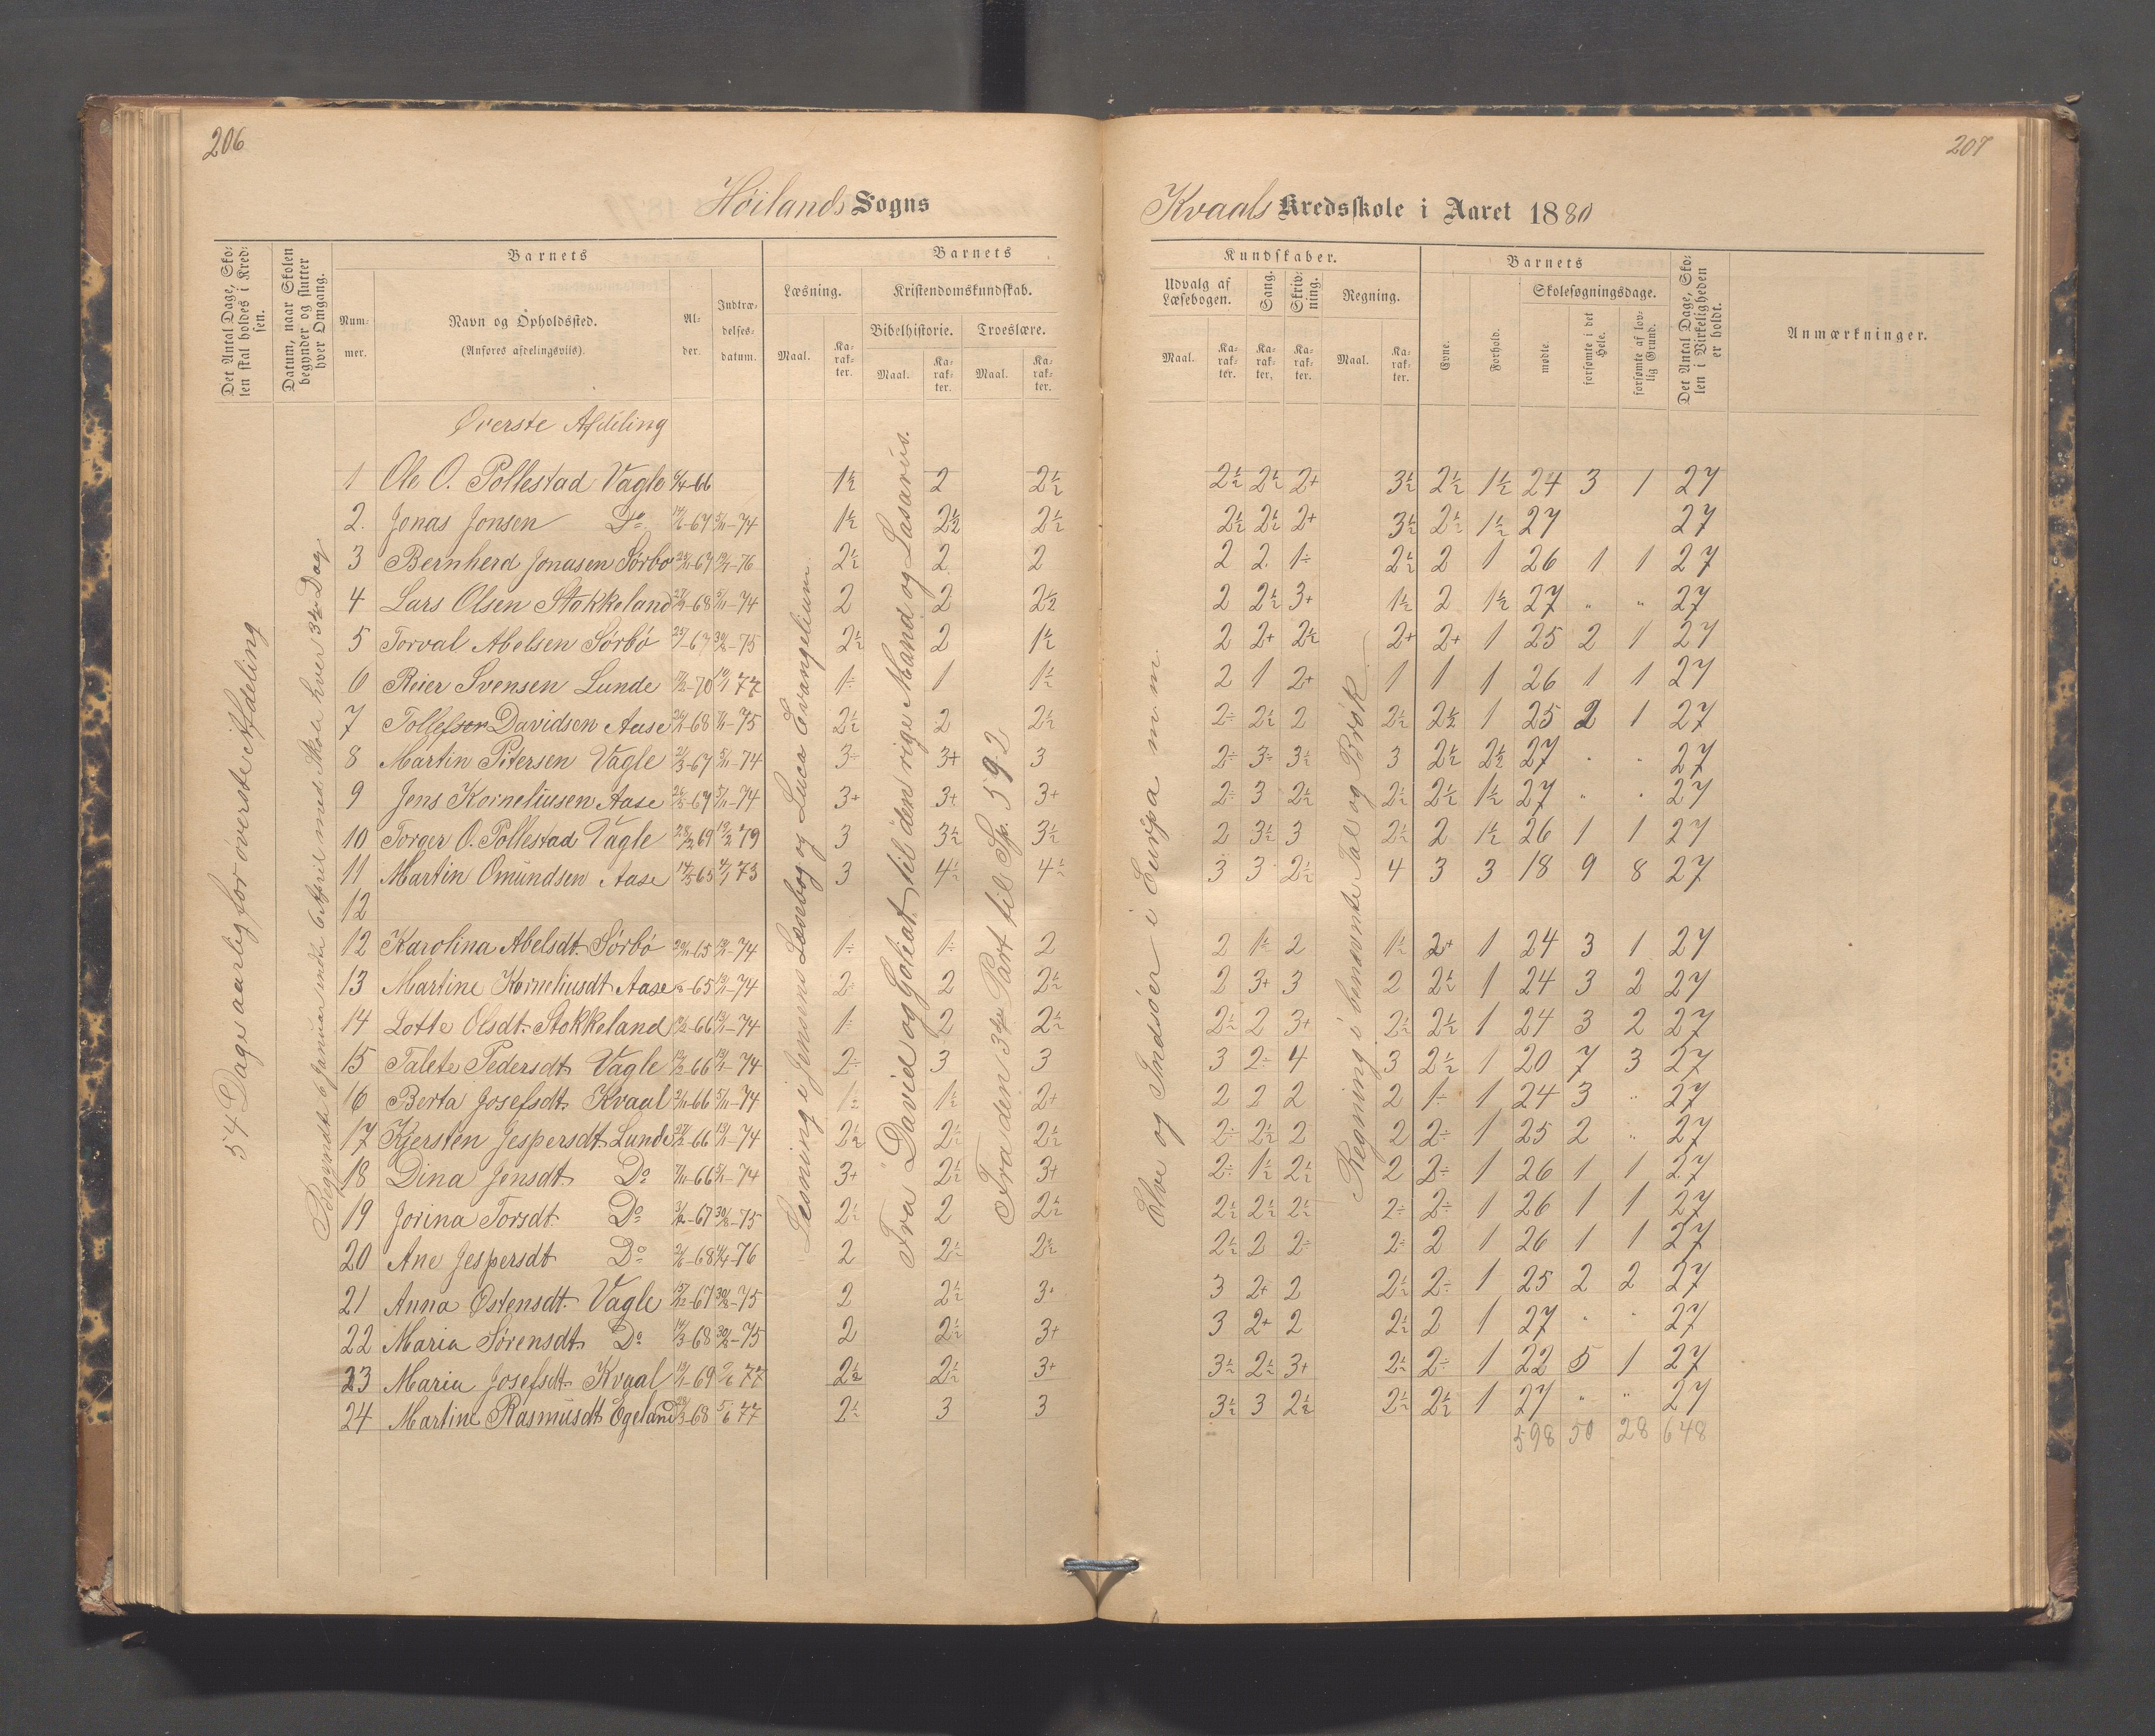 206
Höilands Sogns
Det Antal Dage, Skolen skal holdes i Kredsen.
Datum, naar Skolen begynder og slutter hver Omgang.
Barnets
Nummer.
Navn og Opholdssted.
(Anføres afdelingsviis).
Alder.
Indtrædelsesdatum.
Barnets
Læsning.
Maal.
Karakter.
Kristendomskundskab.
Bibelhistorie.
Maal.
Karakter.
Troeslære.
Maal.
Karakter.
54 Dage aarlig for överste Afdeling
Læsning i Jensens Læsebog og Luca Evangelium
Fra David og Goliat til den rige Mand og Lasarus.
Fra den 3die Part til Sp. 592
Överste Afdeling
1 Ole O. Pollestad Vagle 6/4-66 1½ 2 2½
2. Jonas Jonsen Do -67 5/11-74 1½ 2½ 2½
3 Bernherd Jonasen Sörbö -67 -76 2½ 2 2
4 Lars Olsen Stokkeland -68 5/11-74 2 2 2½
5 Torval Abelsen Sörbö -67 -75 2½ 2 1½
6 Reier Svensen Lunde -70 77 1÷ 1 1½
7 Tollefsen Davidsen Aase -68 -75 2½ 2 2½
8 Martin Pitersen Vagle -67 5/11-74 3÷ 3+ 3
9 Jens Korneliusen Aase -67 5/11-74 3+ 3+ 3+
10 Torger O. Pollestad Vagle 69 79 3 3½ 3½
11 Martin Omundsen Aase 65 73 3 4½ 4½
12
12 Karolina Abelsdt. Sörbö -65 -74 1÷ 1÷ 2
13 Martine Korneliusdt Aase -65 -74 2÷ 2 2½
14 Lotte Olsdt. Stokkeland -66 -74 1÷ 2 2½
15 Talete Pedersdt Vagle -66 -74 2÷ 3 3
16 Berta Josefsdt. Kvaal -66 5/11-74 1½ 1½ 2+
17 Kjersten Jespersdt. Lunde -66 -74 2½ 2½ 2½
18 Dina Jensdt. Do -66 5/11-74 3+ 2½ 3+
19 Jorina Torsdt. Do -67 -75 2½ 2 2½
20 Ane Jespersdt Do -68 -76 2 2½ 2½
21 Anna Östensdt. Vagle -67 -75 2 2½ 3
22 Maria Sörensdt. Do -68 -75 2 2½ 3+
23 Maria Josefsdt. Kvaal -69 77 2½ 2½ 3+
24 Martine Rasmusdt Ögeland -68 5/6 77 2½ 3 3
207
Kvaals Kredsskole i Aaret 1880
Kundskaber.
Udvalg af Læsebogen.
Maal.
Karakter.
Sang.
Karakter.
Skrivning.
Karakter.
Regning.
Maal.
Karakter.
Barnets
Evne.
Forhold.
Skolesøgningsdage.
mødte.
forsømte i det Hele.
forsømte af lovlig Grund.
Det Antal Dage, Skolen i Virkeligheden er holdt.
Anmærkninger.
Elve og Indsöer i Europa m.m.
Regning i benævnte Tal og Brök
2½ 2½ 2+ 3½ 2½ 1½ 24 3 1 27
2½ 2½ 2+ 3½ 2½ 1½ 27 27
2 2 1÷ 2½ 2 1 26 1 1 27
2 2½ 3+ 1½ 2 1½ 27 " " 27
2 2+ 2½ 2+ 2+ 1 25 2 1 27
2 1 2+ 1 1 1 26 1 1 27
2÷ 2½ 2 2½ 2½ 1 25 2 1 27
2÷ 3÷ 3½ 3 2½ 2½ 27 " " 27
2÷ 3 2½ 2½ 2½ 1½ 27 " " 27
2 3½ 3 2½ 2 1½ 26 1 1 27
3 3 2½ 4 3 3 18 9 8 27
2 1½ 2 1½ 2+ 1 24 3 1 27
2 3+ 3 2 2½ 1 24 3 2 27
2½ 2 3+ 2½ 2½ 1 24 3 2 27
3 2÷ 4 3 2½ 1 20 7 3 27
2 2 2 2 1÷ 1 24 3 " 27
2÷ 2½ 2 2 2÷ 1 25 2 " 27
2÷ 1½ 2½ 2 2÷ 1 26 1 1 27
2½ 2½ 2½ 2÷ 2÷ 1 26 1 1 27
2½ 2 2÷ 2÷ 2 1 26 1 1 27
3 2+ 2 2½ 2÷ 1 25 2 2 27
3 2+ 2 2½ 2 1 27 " " 27
3½ 2½ 3+ 2½ 2÷ 1 22 5 1 27
3½ 3 2½ 2½ 2½ 1 27 " " 27
598 50 28 648